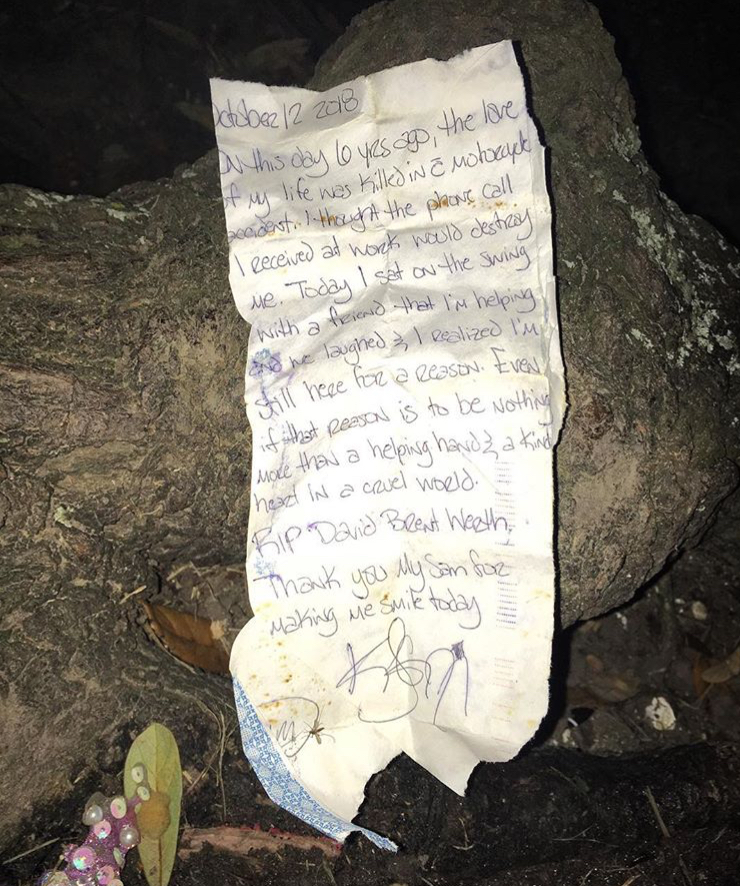 October 12 2018
ON this day 6 yrs ago, the love
of my life was killed in a motorcycle
accident. I thought the phone call
I received at work would destroy
me. Today I sat on the swing
with a friend that I'm helping
and we laughed & I realized I'm
still here for a reason. Even
if that reason is to be nothing
more than a helping hand & a kind
heart in a cruel world.
RIP David Brent
Thank you My Sam for
making me smile today